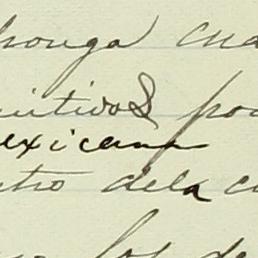 ponga cua
nitivos po
exicana
tro dela c
los de